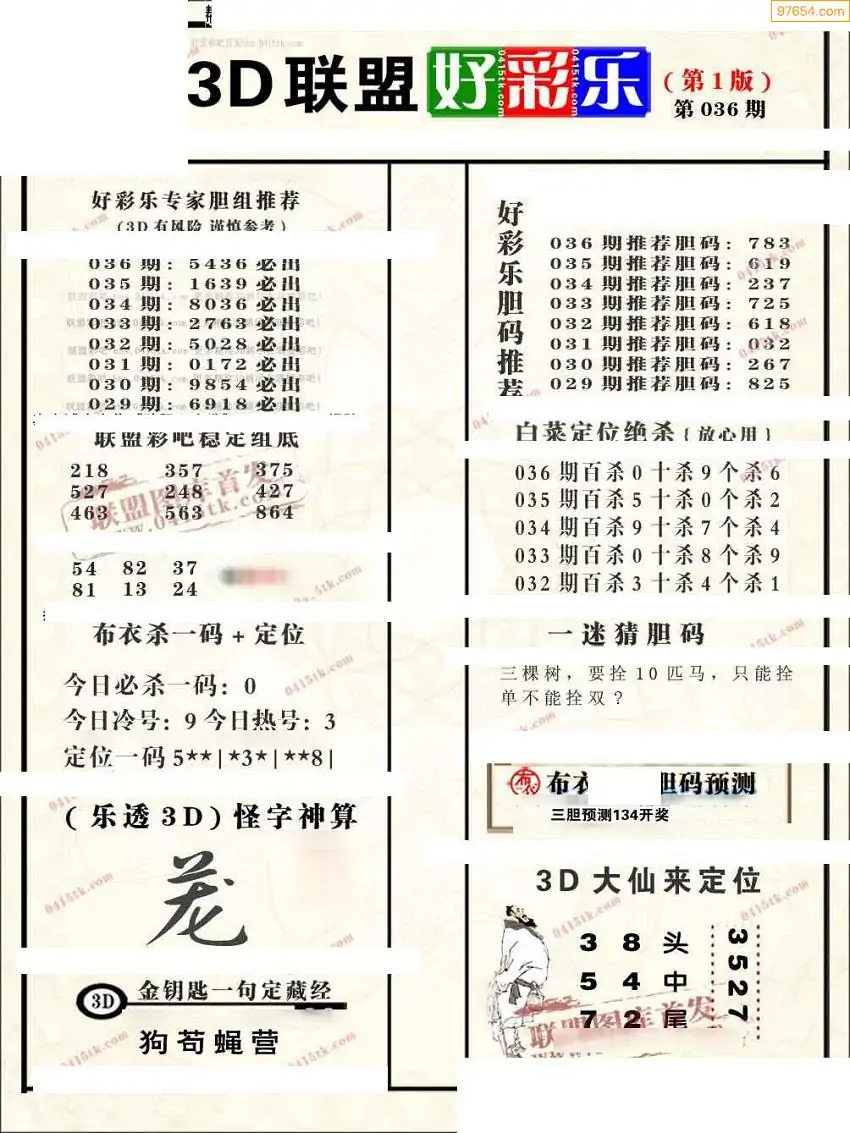 97654.com
3D联盟好彩乐
(第1版)
第036期
好彩乐专家胆组推荐
(3D有风险 谨慎参考)
036期：5436必出
035期：1639必出
034期：8036必出
033期：2763必出
032期：5028必出
031期：0172必出
030期：9854必出
029期：6918必出
联盟彩吧稳定组底
218 357 375
527 248 427
463 563 864
54 82 37
81 13 24
布衣杀一码+定位
今日必杀一码：0
今日冷号：9今日热号：3
定位一码5**|*3*|**8|
(乐透3D)怪字神算
茏
3D 金钥匙一句定藏经
狗苟蝇营
好彩乐胆码推荐
036期推荐胆码：783
035期推荐胆码：619
034期推荐胆码：237
033期推荐胆码：725
032期推荐胆码：618
031期推荐胆码：032
030期推荐胆码：267
029期推荐胆码：825
白菜定位绝杀{放心用}
036期百杀0十杀9个杀6
035期百杀5十杀0个杀2
034期百杀9十杀7个杀4
033期百杀0十杀8个杀9
032期百杀3十杀4个杀1
一迷猜胆码
三棵树，要拴10匹马，只能拴
单不能拴双？
布衣 胆码预测
三胆预测134开奖
3D大仙来定位
3 8 头
5 4 中
7 2 尾
3527
联盟图库首发
0415tk.com